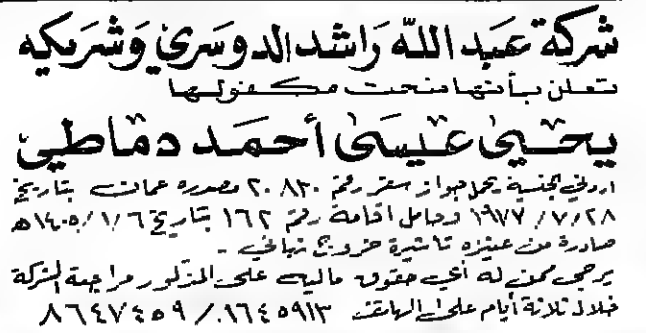 شركة عبد الله راشد الدوسري وشريكه
تعلن بأنها منحت مكفولها
يحيى عيسى أحمد دماطي
اردني الجنسية يحمل جواز سفر رقم ٢٠٨٣٠ مصدره عمان بتاريخ
١٩٧٧/٧/٢٨ وحامل اقامة رقم ١٦٢ بتاريخ ١٤٠٥/١/٦هـ
صادرة من عنيزه تأشيرة خروج نهائي -
يرجى ممن له أي حقوق ماليه على المذكور مراجعة الشركة
خلال ثلاثة أيام على الهاتف ٨٦٤٥٩١٣ / ٨٦٤٧٤٥٩